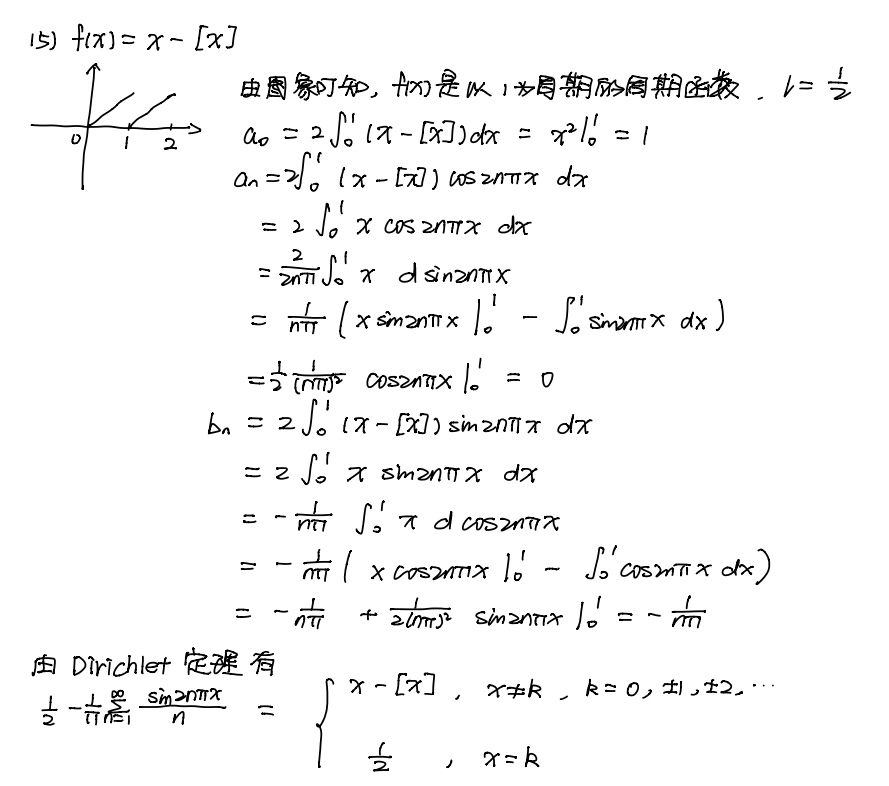 15) f(x) = x - [x]
由图象可知, f(x)是以1为周期的周期函数. l = 1/2
0 1 2
a₀ = 2∫₀¹ (x - [x]) dx = x²|₀¹ = 1
aₙ = 2∫₀¹ (x - [x]) cos2nπx dx
= 2∫₀¹ x cos2nπx dx
= 2/(2nπ) ∫₀¹ x d sin2nπx
= 1/(nπ) (x sin2nπx |₀¹ - ∫₀¹ sin2nπx dx)
= 1/2 1/(nπ)² cos2nπx |₀¹ = 0
bₙ = 2∫₀¹ (x - [x]) sin2nπx dx
= 2∫₀¹ x sin2nπx dx
= -1/(nπ) ∫₀¹ x d cos2nπx
= -1/(nπ) (x cos2nπx |₀¹ - ∫₀¹ cos2nπx dx)
= -1/(nπ) + 1/(2(nπ)²) sin2nπx |₀¹ = -1/(nπ)
由 Dirichlet 定理有
1/2 - 1/π ∑ₙ₌₁^∞ sin2nπx/n = { x - [x], x≠k, k=0, ±1, ±2, …
1/2, x=k